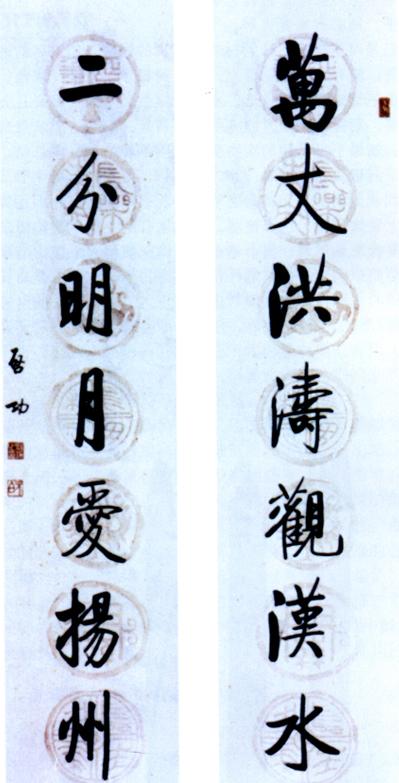 萬丈洪濤觀漢水
二分明月愛揚州
啓功